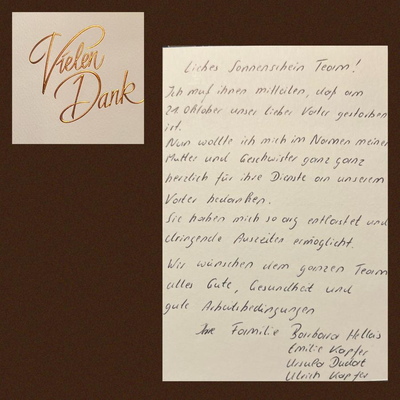 Vielen
Dank
Liebes Sonnenschein Team!
Ich muß ihnen mitteilen, daß am
21. Oktober unser lieber Vater gestorben
ist.
Nun wollte ich mich im Namen meiner
Mutter und Geschwister ganz ganz
herzlich für ihre Dienste an unserem
Vater bedanken.
Sie haben mich so arg entlastet und
dringende Auszeiten ermöglicht.
Wir wünschen dem ganzen Team
alles Gute, Gesundheit und
gute Arbeitsbedingungen
Ihre Familie Barbara
Emilie Kapfer
Ursula
Ulrich Kapfer